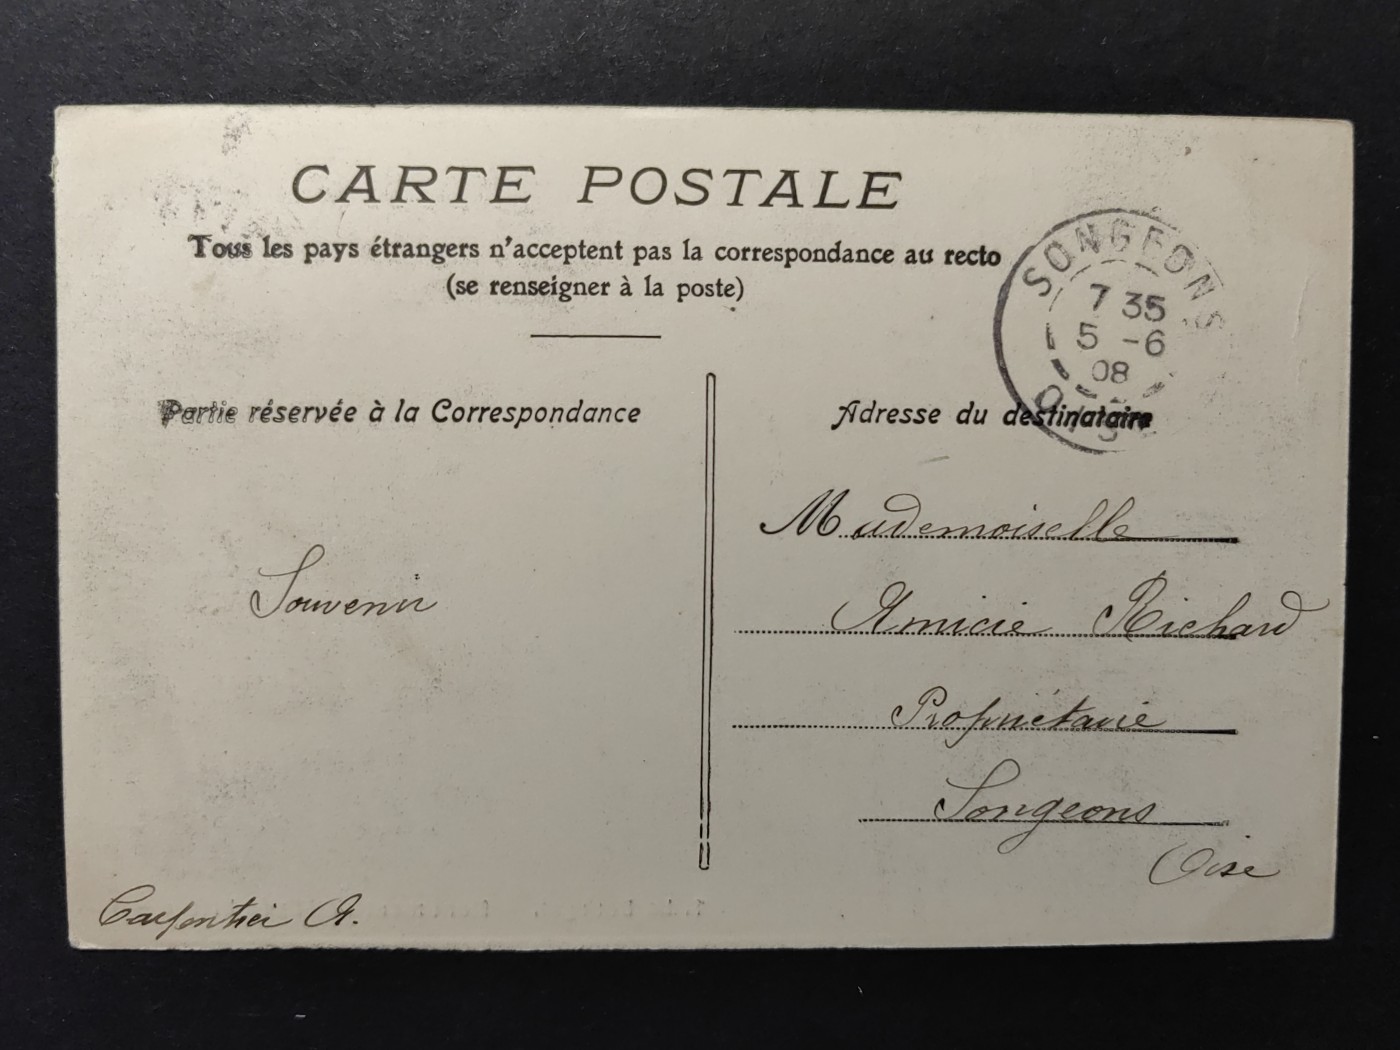 CARTE POSTALE
Tous les pays étrangers n'acceptent pas la correspondance au recto
(se renseigner à la poste)
SONGEONS
7 35
5 -6
08
OISE
Partie réservée à la Correspondance
Adresse du destinataire
Mademoiselle
Amicie Richard
Propriétaire
Songeons
Oise
Souvenir
Carpentier A.